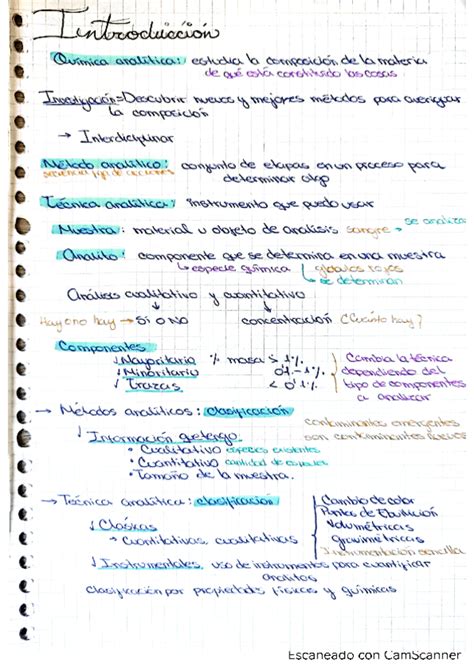 Introducción
Química analítica: estudia la composición de la materia
de qué está constituido las cosas
Investigación = Descubrir nuevos y mejores métodos para averiguar
la composición
→ Interdiciplinar
Método analítico: conjunto de etapas en un proceso para
secuencia fija de acciones determinar algo
Técnica analítica: instrumento que puedo usar
Muestra: material u objeto de análisis sangre → se analiza
Analito: componente que se determina en una muestra
↳ especie química globulos rojos
↳ se determinan
Análisis cualitativo y cuantitativo
Hay o no hay → Si o No concentración (Cuánto hay?
Componentes
↓ Mayoritario % masa > 1%
↓ Minoritario 0.1 - 1%
↓ Trazas < 0.1%
Cambia la técnica
dependiendo del
tipo de componentes
a analizar
→ Métodos analíticos: clasificación
contaminantes emergentes
son contaminantes nuevos
↓ Información
• Cualitativo especies existentes
• Cuantitativo cantidad de especies
• Tamaño de la muestra.
→ Técnica analítica: clasificación
↓ Clásicas
→ Cuantitativas, cualitativas
Cambio de color
Puntos de Ebullición
Volumétricas
gravimétricas
Instrumentación sencilla
↓ Instrumentales, uso de instrumentos para cuantificar
analitos
clasificación por propiedades físicas y químicas
Escaneado con CamScanner